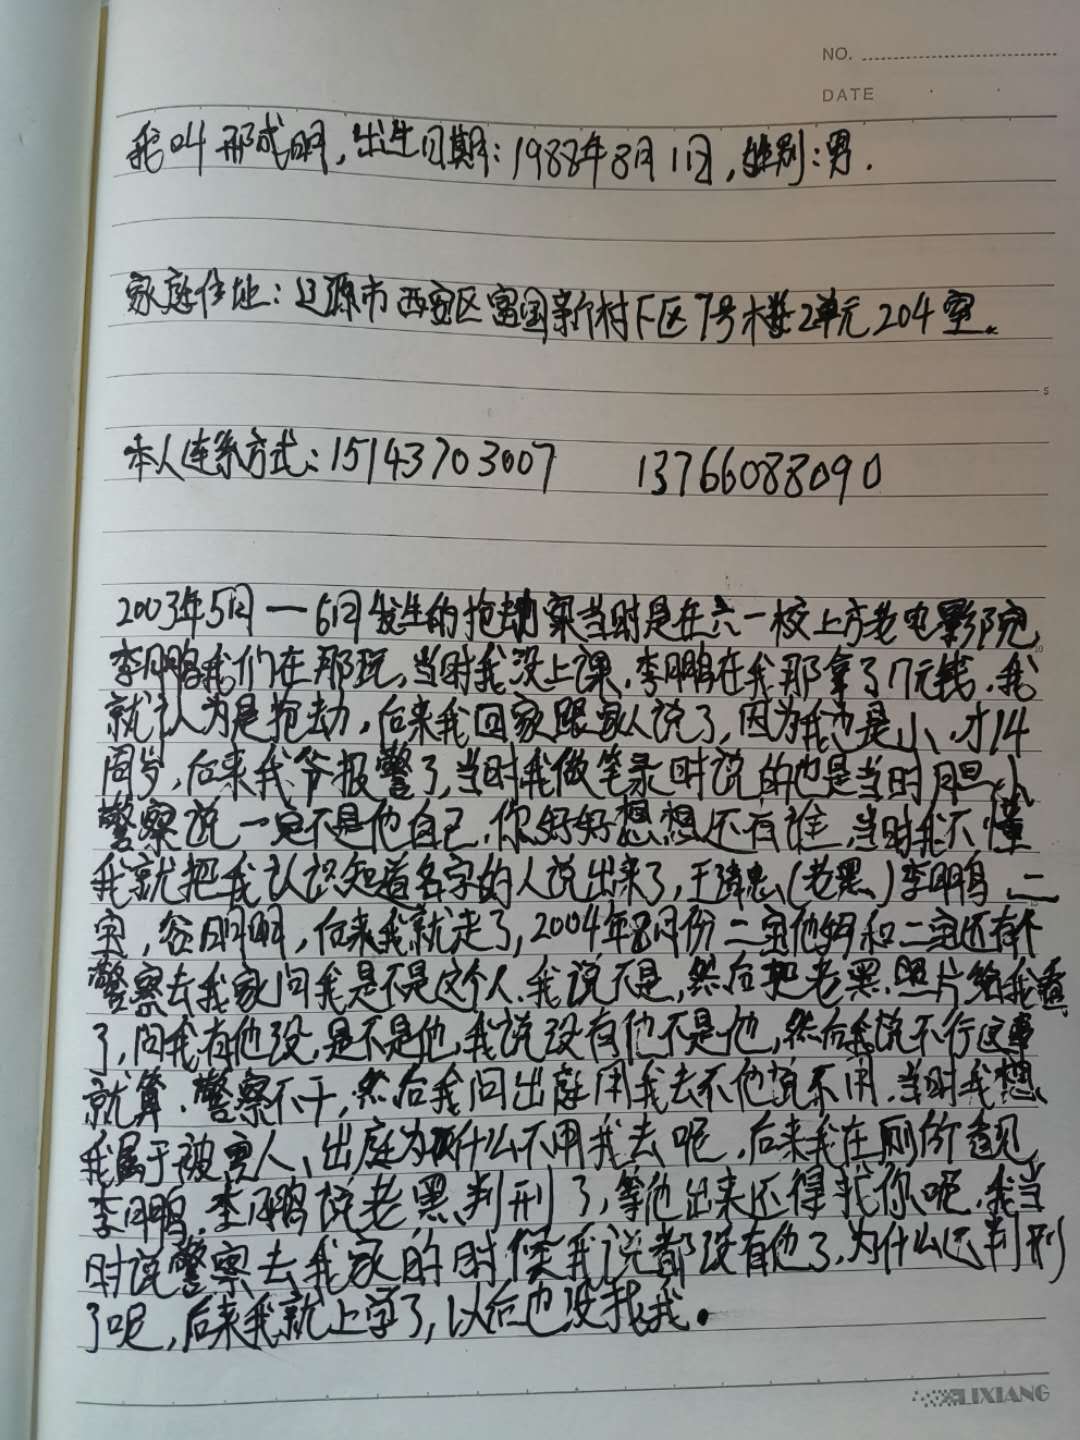 NO.
DATE
我叫邢成明,出生日期:1988年8月1日,性别:男.
家庭住址:辽源市西安区富国新村下区7号楼2单元204室.
5
本人连系方式:15143703007 13766088090
2003年5月—6月发生的抢劫案当时是在六一校上方老电影院,
10
李鹏我们在那玩,当时我没上课.李鹏在我那拿了17元钱.我
就认为是抢劫,后来我回家跟家人说了,因为我也是小、才14
周岁,后来我爷报警了,当时我做笔录时说的也是当时胆小
警察说一定不是他自己.你好好想想还有谁,当时我不懂
我就把我认识知道名字的人说出来了,王忠(老黑)李鹏、二
宝,谷明明,后来我就走了,2004年8月份二宝他妈和二宝还有个
警察去我家问我是不是这个人.我说不是,然后把老黑.照片给我看
了,问我有他没,是不是他,我说没有他不是他,然后我说不行这事
就算.警察不干,然后我问出庭用我去不他说不用.当时我想
我属于被害人、出庭为什么不用我去呢.后来我在厕所看见
李鹏.李鹏说老黑判刑了,等他出来还得找你呢.我当
时说警察去我家的时候我说都没有他了,为什么还判刑
了呢,后来我就上学了,以后也没找我.
LIXIANG